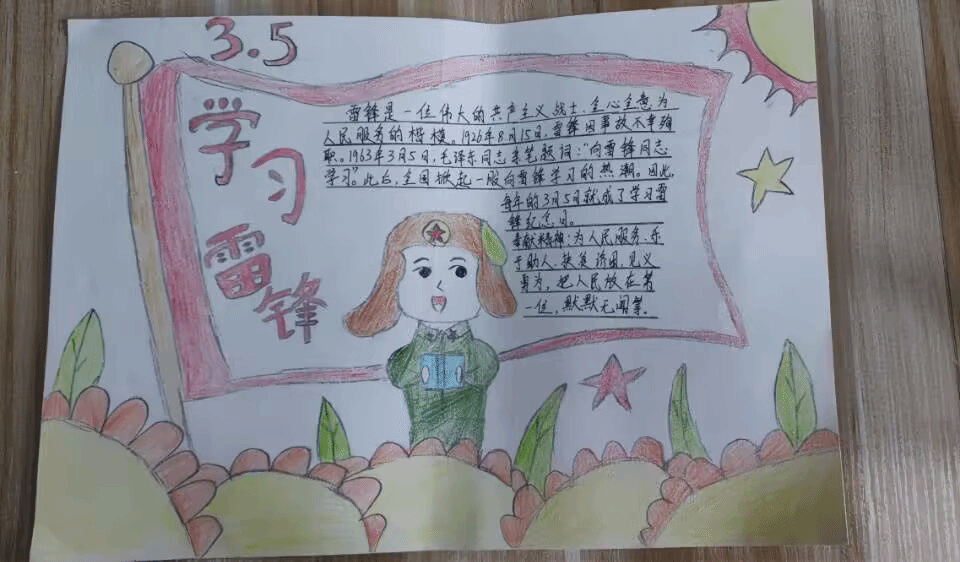 3.5
学习
雷锋
雷锋是一位伟大的共产主义战士、全心全意为
人民服务的楷模。1926年8月15日，雷锋因事故不幸殉
职。1963年3月5日，毛泽东同志亲笔题词：“向雷锋同志
学习”。此后，全国掀起一股向雷锋学习的热潮。因此，
每年的3月5日就成了学习雷
锋纪念日。
奉献精神：为人民服务、乐
于助人、扶贫济困、见义
勇为，把人民放在第
一位，默默无闻等。